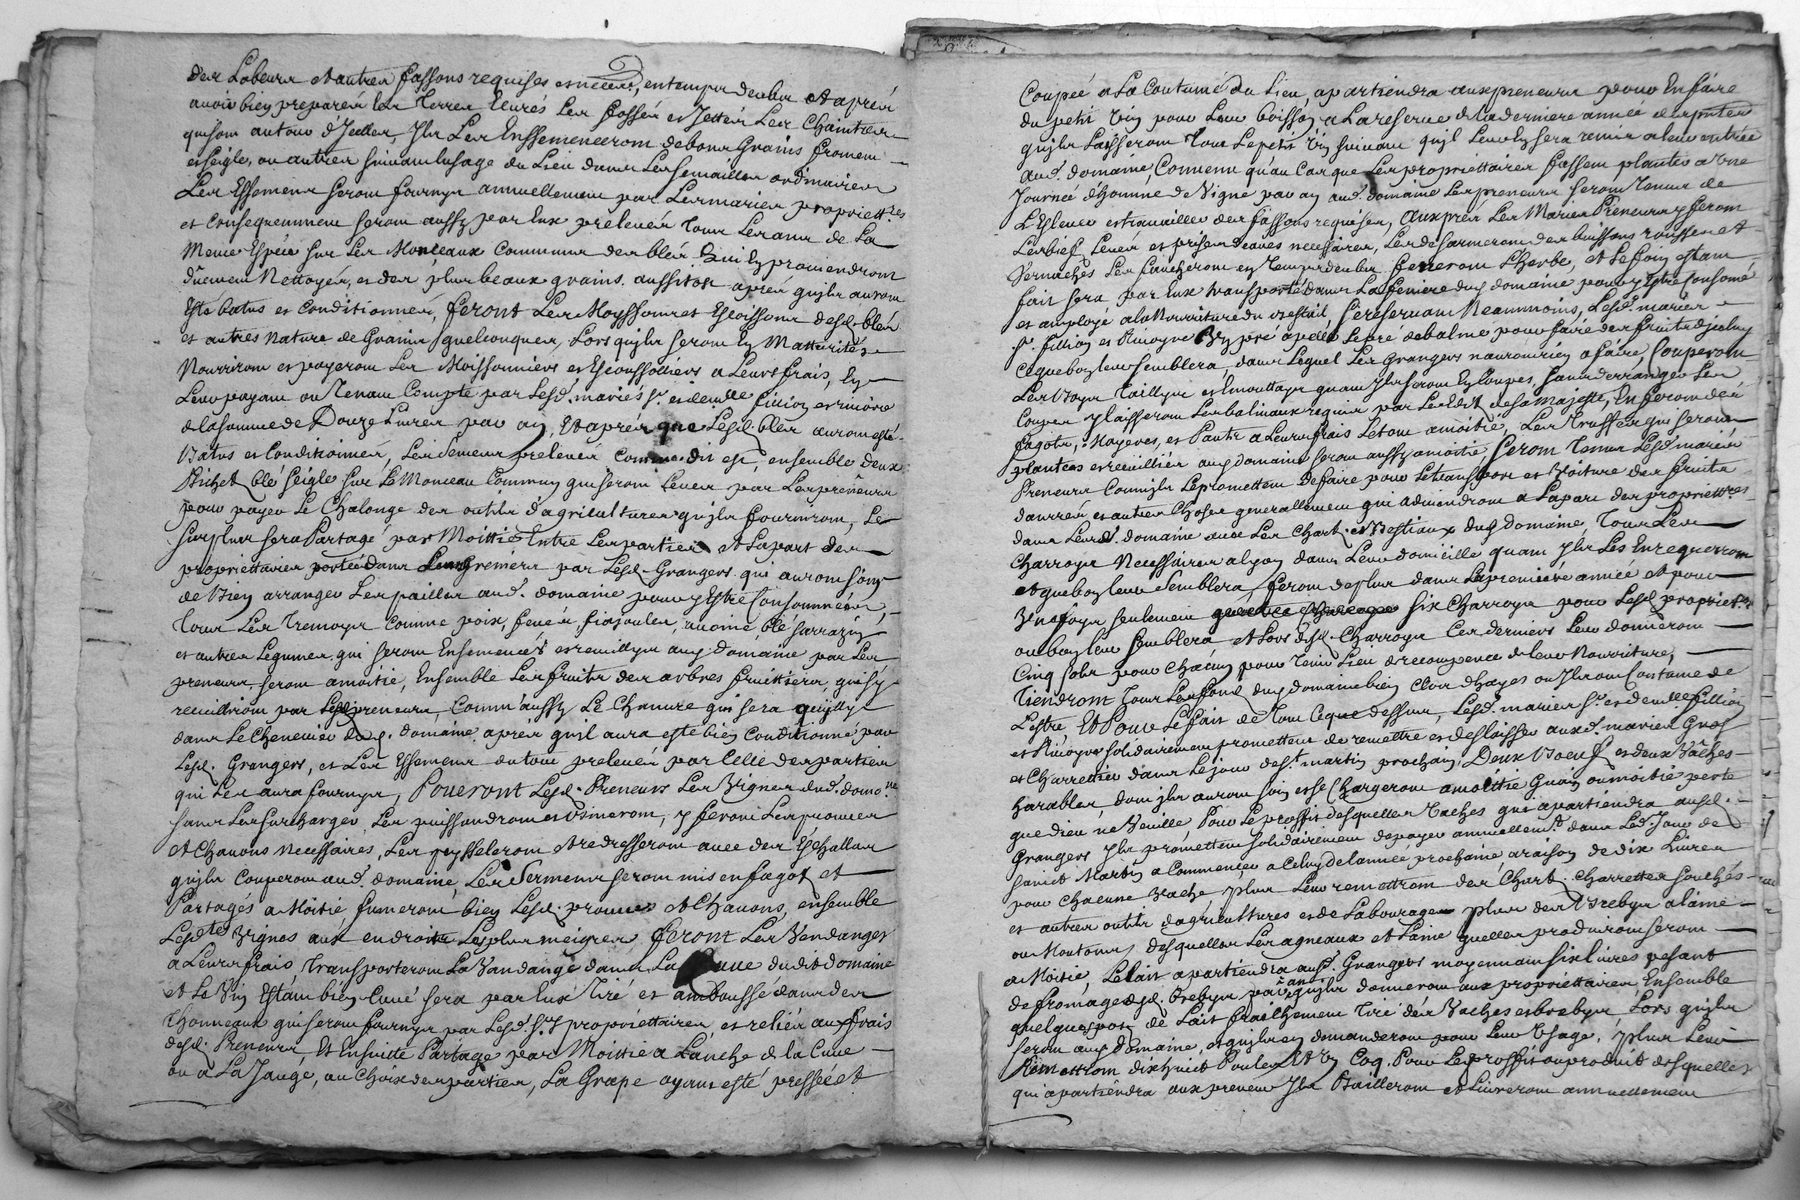 des Labeurs et autres fassons requises et necess.res, en temps deubs et aprés
avoir bien preparér les Terres Levrés Les fossés et Jettér Les Chaintres
qui sont autour d'Jcelles, Jls Les Enssemenceront de bons Grains froment
et seigle, ou autres suivant lusage du Lieu dans Les semailles ordinaires
Les Essemens seront fournys annuellement par Les mariés propriettres
et consequemment seront aussy par Eux prelevér Tous Les ans de La
Meme Espéce sur Les Monceaux communs des blés Qui En proviendront
dûement Nettoyés, et des plus beaux grains aussitost aprés quils auront
Esté batus et conditionnés, feront Les Moyssons et Escoissons desd. blés
et autres nature de Grains quelconques, Lors quils seront En Matturités
Nourriront et payeront Les Moissonniers et Escoussoiliers a Leurs frais, En
Leur payant ou Tenant Compte par Lesd. mariés sr. et demlle fillion et rimoire
de la somme de Douze Livres par an, Et aprés que Lesd. bles auront esté
Batus et Conditionnés, Les semens prelevér comme dit est, ensemble deux
Bichet blé seigle sur Le Monceau Commun qui seront Levés par Les preneurs
pour payer Le Chalonge des outils d'agricultures quils fourniront, Le
surplus sera Partagé par Moittié Entre Les parties et La part des
propriettaires portée dans Leurs Greniers par Lesd. Grangers qui auront soin
de bien arranger Les pailles aud. domaine pour y Estre Consommées,
Tous Les Tremoys comme poix, feves, fiajoules, avoine blé sarrazin
et autres Legumes qui seront Ensemencés et receuillys aud. domaine par Les
preneurs seront amoitié, Ensemble Les fruits des arbres fruittiers, qui s'y
receuilliront par Lesd. preneurs, Comm'aussy Le Chanvre qui sera queilly
dans Le Chenevier dud. domaine aprés qu'il aura esté bien Conditionné par
Lesd. Grangers, et Les Essemens du tout prelevés par Celle des parties
qui Les aura fournys, Poueront Lesd. Preneurs Les Vignes dud. domo.ne
sans Les surcharger Les puissandront et bineront, y feront Les prouves
et Chavons necessaires, Les peysseleront et redresseront avec des Eschallas
quils couperont aud. domaine, Les Sermens seront mis en fagot et
Partagés a Moitié fumeront bien Lesd. prouves et Chavons, ensemble
Lesdtes Vignes aux endroits Les plus meigres feront Les Vendanges
a Leurs frais transporteront La Vandange dans La Cuve dudit domaine
et Le Vin Estant bien Cuvé sera par Eux Tiré et ambousse dans des
Thonneaux qui seront fournys par Lesd. Srs propriettaires et reliés aux frais
desd. Preneurs, Et Ensuitte Partagé par Moittié a L'anche de la Cuve
ou a La Jauge, au choix des parties, La Grape ayant esté pressée et
Coupée a La Coutume du Lieu, apartiendra aux preneurs pour En faire
du petit Vin pour Leur boisson a La reserve de La derniere année du present
quils Laisseront Tout Le petit Vin suivant quil Leur En sera remis a Leur entrée
aud. domaine, Convenu qu'au Cas que Les propriettaires fassent planter a Une
Journée d'homme de Vigne par an aud. domaine Les preneurs seront Tenus de
L'Esleuer et travailler des fassons requises, Aux prés Les Mariés Preneurs y feront
Les bief Lever et prises d'eaues necessaires, Les desarmeront des buissons rousses et
Vernaches Les faucheront En Temps deubs feneront L'herbe, et Le foin estant
fait sera par Eux transporté dans La feniere dud. domaine pour y Estre Consomé
et amployé a la Nourriture du bestail, se reservant Neammoins, Lesd. mariés
Sr. fillion et Rimoyre Un pré apellé Le pré de balme pour faire des fruits d'jceluy
Ce que bon leur semblera, dans Lequel Les Grangers n'auront rien a faire, Couperont
Les bois Taillys et Emouttays quant Jls seront En Coupes, sans derranger Les
Coupes y laisseront Les balivaux requis par Les Edit de Sa Majesté, En feront des
fagots, Mayeres, et Pauts a Leurs frais Le tout amoitié, Les Truffes qui seront
plantées et receuillies aud. domaine seront aussy a moitié, feront Tenus Lesd. mariés
Preneurs Comm'ils Le promettent de faire pour Le transport et Voiture des fruits
danrées et autres choses generallement qui adviendront a La part des propriettres
dans Leurd. domaine avec Les Chart et Bestiaux dud. domaine, Tous Les
Charroys Necessaires a lyon dans Leur domicille quant Jls Les En requerront
et que bon leur semblera, feront de plus dans La premiére année et pour
Une fois seulement six Charroys pour Lesd. propriet.es
ou bon leur semblera et Lors desd. Charroys Ces derniers Leur donneront
Cinq sols pour Chacun pour Tenir Lieu de recompence de leur Nourriture,
Tiendront Tous Les fond dud. domaine bien Clos d'hayes ou Jls ont Contume de
L'estre, Et Pour Le fait de Tout Ce que dessus, Lesd. mariés sr. et demlle fillion
et Rimoyre solidairement promettent de remettre et deslaisser auxd. mariés Gros
et Charrettier dans Le jour de St. martin prochain, Deux Boeufs et deux Vaches
harables dont jls auront soin et se Chargeront a moittié Gain ou moitié perte
que dieu ne Veuille Pour Le proffit desquelles Vaches qui apartiendra ausd.
Grangers Jls promettent solidairement de payer annuellemt. dans Led. Jour de
Sainct Martin a Commencer a Celuy de l'année prochaine a raison de dix Livres
pour Chacune Vache, plus Leur remettront des Chart, Charrettes sonchés
et autres outils d'agricultures et de Labourage, plus des Brebys a laine
ou Moutons, desquelles Les agneaux et Laine quelles produiront seront
a Moitié, Le lait apartiendra ausd. Grangers moyennant six livres pesant
de fromage desd. brebys par an quils donneront aux propriéttaires, Ensemble
quelques pots de Lait fraichement Tiré des Vaches et brebys Lors quils
seront aud. Domaine, et quils en demanderont pour Leur Usage, plus Leur
Remettront dix huit Poules et Un Coq, Pour Le proffit ou produit desquelles
qui apartiéndra aux preneurs Jls Bailleront et Livreront annuellement